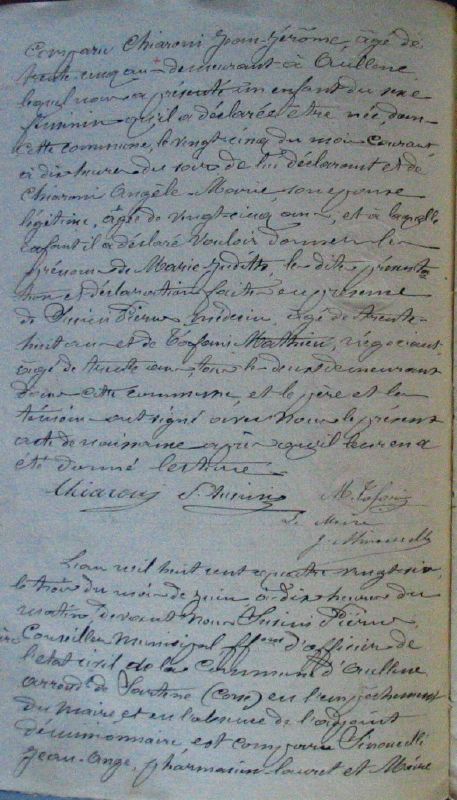 Comparu Chiaroni Jean-Jérôme, âgé de
trente cinq ans demeurant à Aullene,
lequel nous a présenté un enfant du sexe
féminin qu'il a déclarée être née dans
cette commune, le vingt cinq du mois courant,
à dix heures du soir de lui déclarant et de
Chiaroni Angèle-Marie, son épouse
légitime, âgée de vingt-cinq ans, et à laquelle
enfant il a déclaré vouloir donner le
prénom de Marie-Judith, le dite présenta
tion et déclaration faite en présence
de Susini Pierre, médecin, âgé de trente-
huit ans et de Tafani Mathieu, négociant,
âgé de trente ans, tous les deux demeurant
dans cette commune, et le père et les
témoins ont signé avec nous le présent
acte de naissance après qu'il leur en a
été donné lecture
Chiaroni S. Susini M. Tafani
Le Maire
L'an mil huit cent quatre vingt six
le trois du mois de juin à dix heures du
matin, devant nous Susini Pierre,
Conseiller municipal ff.ons d'officier de
l'état civil de la Commune d'Aullene
arrond.t de Sartène (Corse) en l'empêchement
du Maire et en l'absence de l'adjoint
démissionnaire, est comparu
Jean-Ange, pharmacien lauret et Maire